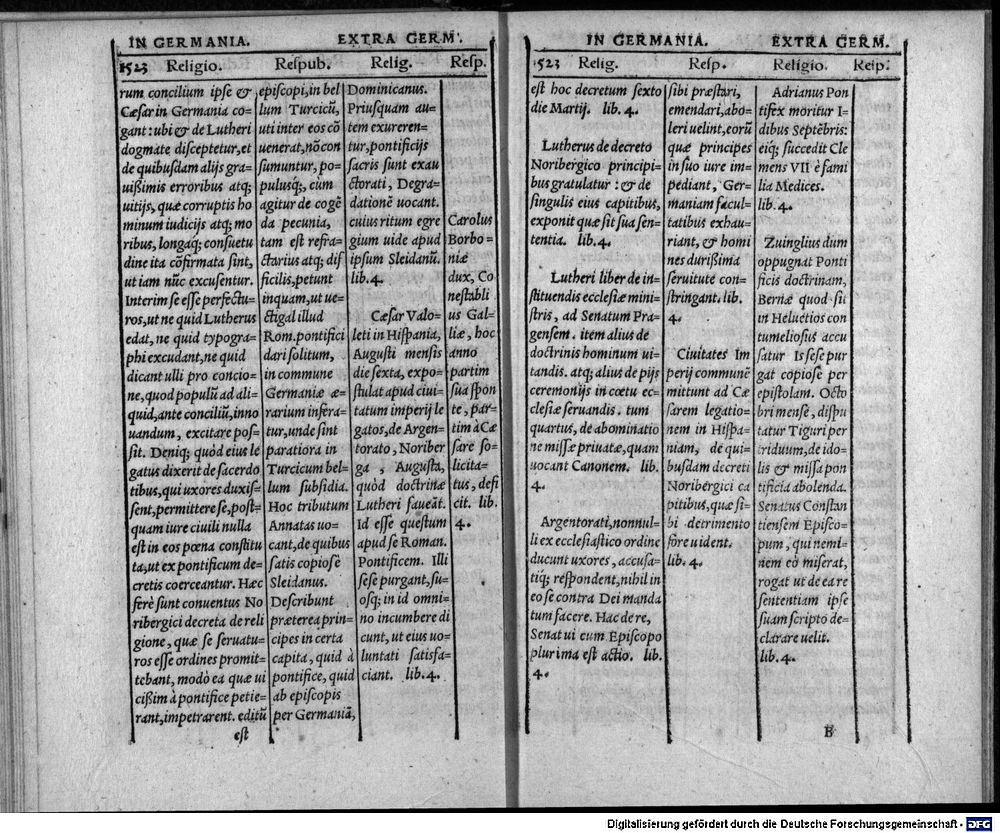 IN GERMANIA. EXTRA GERM'.
1523 Religio. Respub. Relig. Resp.
rum concilium ipse &
Cæsar in Germania co=
gant: ubi & de Lutheri
dogmate disceptetur, et
de quibusdam alijs gra=
uißimis erroribus atq;
uitijs, quæ corruptis ho
minum iudicijs atq; mo
ribus, longaq; consuetu
dine ita cõfirmata sint,
ut iam nũc excusentur.
Interim se esse perfectu=
ros, ut ne quid Lutherus
edat, ne quid typogra=
phi excudant, ne quid
dicant ulli pro concio=
ne, quod populũ ad ali=
quid, ante conciliũ, inno
uandum, excitare pos=
sit. Deniq; quòd eius le
gatus dixerit de sacerdo
tibus, qui uxores duxis=
sent, permittere se, post=
quam iure ciuili nulla
est in eos pœna constitu
ta, ut ex pontificum de=
cretis coerceantur. Hæc
ferè sunt conuentus No
ribergici decreta de reli
gione, quæ se seruatu=
ros esse ordines promit=
tebant, modò ea quæ ui
cißim à pontifice petie=
rant, impetrarent. editũ
est
episcopi, in bel
lum Turcicũ,
uti inter eos cõ
uenerat, nõ con
sumuntur, po=
pulusq;, cùm
agitur de cogẽ
da pecunia,
tam est refra=
ctarius atq; dif
ficilis, petunt
inquam, ut ue=
ctigal illud
Rom. pontifici
dari solitum,
in commune
Germaniæ æ=
rarium infera=
tur, unde sint
paratiora in
Turcicum bel=
lum subsidia.
Hoc tributum
Annatas uo=
cant, de quibus
satis copiosè
Sleidanus.
Describunt
præterea prin=
cipes in certa
capita, quid à
pontifice, quid
ab episcopis
per Germaniã,
Dominicanus.
Priusquam au=
tem exureren=
tur, pontificijs
sacris sunt exau
ctorati, Degra=
dationẽ uocant.
cuius ritum egre
gium uide apud
ipsum Sleidanũ.
lib. 4.
Cæsar Valo=
leti in Hispania,
Augusti mensis
die sexta, expo=
stulat apud ciui=
tatum imperij le
gatos, de Argen=
torato, Noriber
ga, Augusta,
quòd doctrinæ
Lutheri faueãt.
Id esse questum
apud se Roman.
Pontificem. Illi
sese purgant, su=
osq; in id omni=
no incumbere di
cunt, ut eius uo=
luntati satisfa=
ciant. lib. 4.
Carolus
Borbo=
niæ
dux, Co
nestabli
us Gal=
liæ, hoc
anno
partim
sua spon
te, par=
tim à Cæ
sare so=
licita=
tus, defi
cit. lib.
4.
IN GERMANIA. EXTRA GERM.
1523 Relig. Resp. Religio. Reip.
est hoc decretum sexto
die Martij. lib. 4.
Lutherus de decreto
Noribergico principi=
bus gratulatur: & de
singulis eius capitibus,
exponit quæ sit sua sen=
tentia. lib. 4.
Lutheri liber de in=
stituendis ecclesiæ mini=
stris, ad Senatum Pra=
gensem. item alius de
doctrinis hominum ui=
tandis. atq; alius de pijs
ceremonijs in cœtu ec=
clesiæ seruandis. tum
quartus, de abominatio
ne missæ priuatæ, quam
uocant Canonem. lib.
4.
Argentorati, nonnul=
li ex ecclesiastico ordine
ducunt uxores, accusa=
tiq; respondent, nihil in
eo se contra Dei manda
tum facere. Hac de re,
Senatui cum Episcopo
plurima est actio. lib.
4.
sibi præstari,
emendari, abo=
leri uelint, eorũ
quæ principes
in suo iure im=
pediant, Ger=
maniam facul=
tatibus exhau=
riant, & homi
nes durißima
seruitute con=
stringant. lib.
4.
Ciuitates Im
perij communẽ
mittunt ad Cæ
sarem legatio=
nem in Hispa=
niam, de qui=
busdam decreti
Noribergici ca
pitibus, quæ si=
bi detrimento
fore uident.
lib. 4.
Adrianus Pon
tifex moritur I=
dibus Septẽbris:
eiq; succedit Cle
mens VII è fami
lia Medices.
lib. 4.
Zuinglius dum
oppugnat Ponti
ficis doctrinam,
Bernæ quod sit
in Heluetios con
tumeliosus accu
satur Is sese pur
gat copiosè per
epistolam. Octo
bri mensè, dispu
tatur Tiguri per
triduum, de ido=
lis & missa pon
tificia abolenda.
Senatus Constan
tiensem Episco=
pum, qui nemi=
nem eò miserat,
rogat ut de ea re
sententiam ipse
suam scripto de=
clarare uelit.
lib. 4.
B
Digitalisierung gefördert durch die Deutsche Forschungsgemeinschaft - DFG